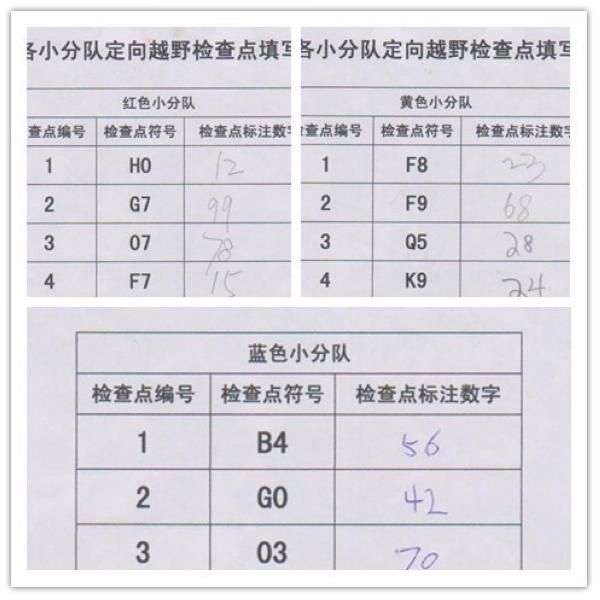 各小分队定向越野检查点填写
红色小分队
查点编号 检查点符号 检查点标注数字
1 H0 12
2 G7 99
3 O7 78
4 F7 15
各小分队定向越野检查点填写
黄色小分队
查点编号 检查点符号 检查点标注数字
1 F8 23
2 F9 68
3 Q5 28
4 K9 24
蓝色小分队
检查点编号 检查点符号 检查点标注数字
1 B4 56
2 G0 42
3 O3 70